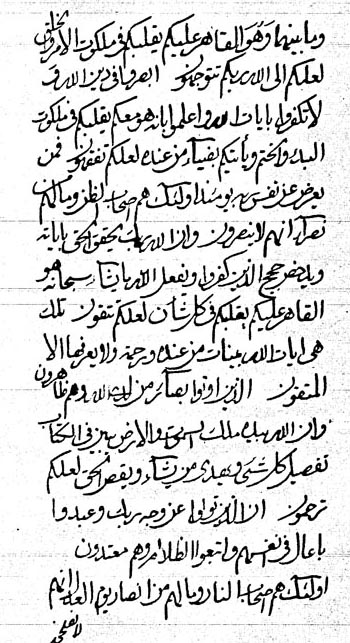 وما بينهما وهو القاهر عليكم يقلبكم في ملكوت الامر والخلق
لعلكم الى الله ربكم تتوجهون انصروا في دين الله و
لا تكفروا بايات الله واعلموا بانه هو معكم يقلبكم في ملكوت
البدء والختم ويأتيكم بقيات من عنده لعلكم تفقهون فمن
يعرض عن نفس ربه يومئذ اولئك هم اصحاب الظن وما لهم
نصراء انهم لا ينصرون وان الله ربك يحقق الحق باياته
ويدحض حجج الذين كفروا ويفعل الله ما يشاء سبحانه هو
القاهر عليكم يقلبكم في كل شأن لعلكم تتقون تلك
هي ايات الله بينات من عنده ورحمة ولا يعرفها الا
المتقون الذين اوتوا بصائر من الله وهم ظاهرون
وان الله بيده ملك السموات والارض يبين في الكتاب
تفصيل كل شيء ويهدي من يشاء ويقص الحق لعلكم
ترحمون ان الذين تولوا عن وجه ربك وعبدوا
باعمال في انفسهم واتبعوا الظلام وهم معتدون
اولئك هم اصحاب النار وما لهم من انصار يوم العدل انهم
لا يفلحون